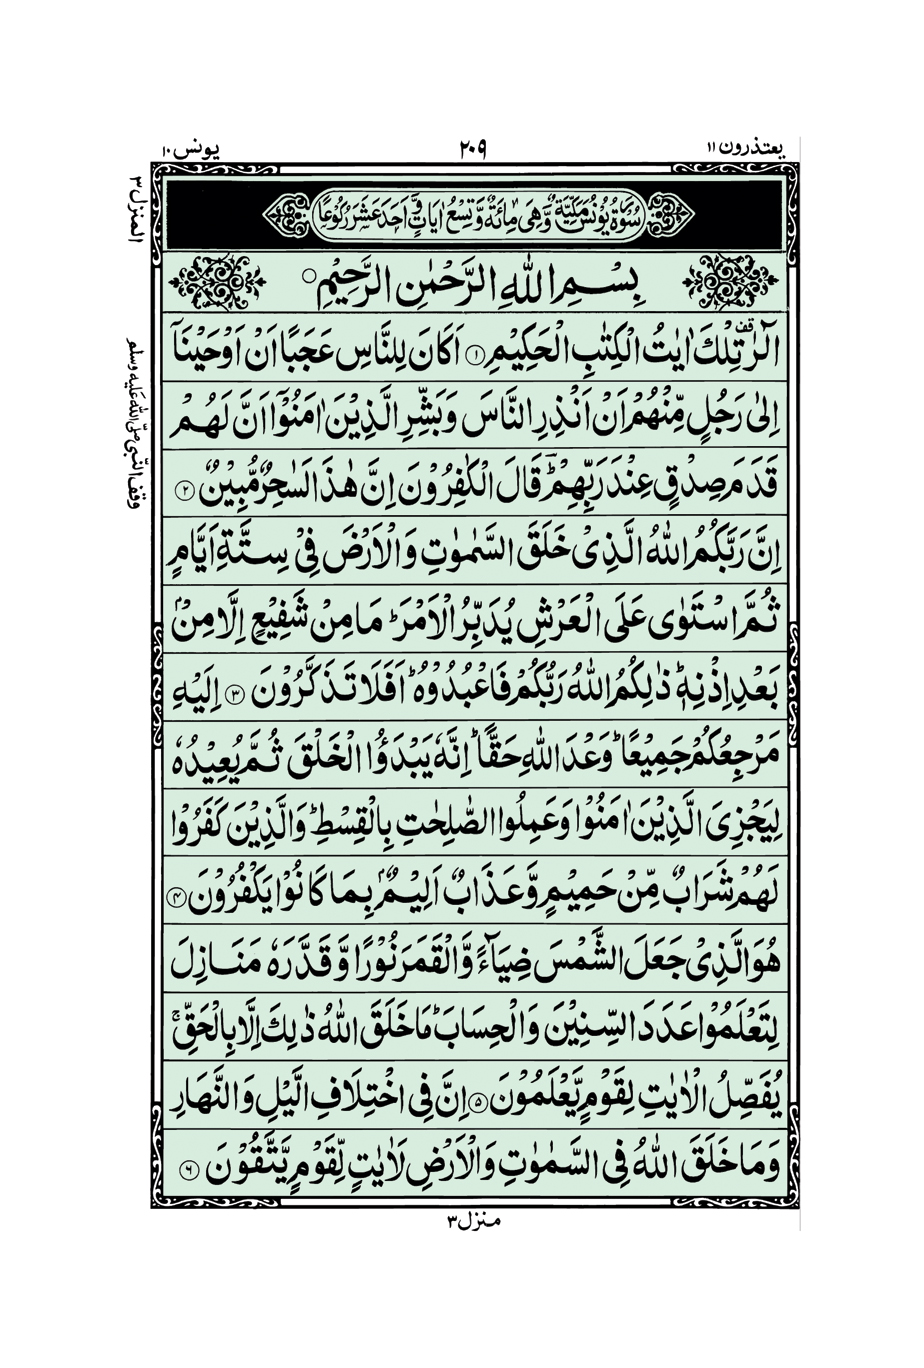 يعتذرون ۱۱
۲۰۹
يونس ۱۰
المنزل ۳
سُوْرَةُ يُوْنُسَ مَكِّيَّةٌ وَّهِىَ مِائَةٌ وَّتِسْعُ اٰيَاتٍ وَّاَحَدَ عَشَرَ رُكُوْعًا
بِسْمِ اللّٰهِ الرَّحْمٰنِ الرَّحِيْمِ ○
الٓرٰ ۚ قف تِلْكَ اٰيٰتُ الْكِتٰبِ الْحَكِيْمِ ۝۱ اَكَانَ لِلنَّاسِ عَجَبًا اَنْ اَوْحَيْنَاۤ
اِلٰى رَجُلٍ مِّنْهُمْ اَنْ اَنْذِرِ النَّاسَ وَبَشِّرِ الَّذِيْنَ اٰمَنُوْۤا اَنَّ لَهُمْ
وقف النّبى صلّى الله عليه وسلم
قَدَمَ صِدْقٍ عِنْدَ رَبِّهِمْ ؔؕ قَالَ الْكٰفِرُوْنَ اِنَّ هٰذَا لَسٰحِرٌ مُّبِيْنٌ ۝۲
اِنَّ رَبَّكُمُ اللّٰهُ الَّذِىْ خَلَقَ السَّمٰوٰتِ وَالْاَرْضَ فِىْ سِتَّةِ اَيَّامٍ
ثُمَّ اسْتَوٰى عَلَى الْعَرْشِ يُدَبِّرُ الْاَمْرَ ؕ مَا مِنْ شَفِيْعٍ اِلَّا مِنْۢ
بَعْدِ اِذْنِهٖ ؕ ذٰلِكُمُ اللّٰهُ رَبُّكُمْ فَاعْبُدُوْهُ ؕ اَفَلَا تَذَكَّرُوْنَ ۝۳ اِلَيْهِ
مَرْجِعُكُمْ جَمِيْعًا ؕ وَعْدَ اللّٰهِ حَقًّا ؕ اِنَّهٗ يَبْدَؤُا الْخَلْقَ ثُمَّ يُعِيْدُهٗ
لِيَجْزِىَ الَّذِيْنَ اٰمَنُوْا وَعَمِلُوا الصّٰلِحٰتِ بِالْقِسْطِ ؕ وَالَّذِيْنَ كَفَرُوْا
لَهُمْ شَرَابٌ مِّنْ حَمِيْمٍ وَّعَذَابٌ اَلِيْمٌۢ بِمَا كَانُوْا يَكْفُرُوْنَ ۝۴
هُوَ الَّذِىْ جَعَلَ الشَّمْسَ ضِيَآءً وَّالْقَمَرَ نُوْرًا وَّقَدَّرَهٗ مَنَازِلَ
لِتَعْلَمُوْا عَدَدَ السِّنِيْنَ وَالْحِسَابَ ؕ مَا خَلَقَ اللّٰهُ ذٰلِكَ اِلَّا بِالْحَقِّ ۚ
يُفَصِّلُ الْاٰيٰتِ لِقَوْمٍ يَّعْلَمُوْنَ ۝۵ اِنَّ فِى اخْتِلَافِ الَّيْلِ وَالنَّهَارِ
وَمَا خَلَقَ اللّٰهُ فِى السَّمٰوٰتِ وَالْاَرْضِ لَاٰيٰتٍ لِّقَوْمٍ يَّتَّقُوْنَ ۝۶
منزل ۳